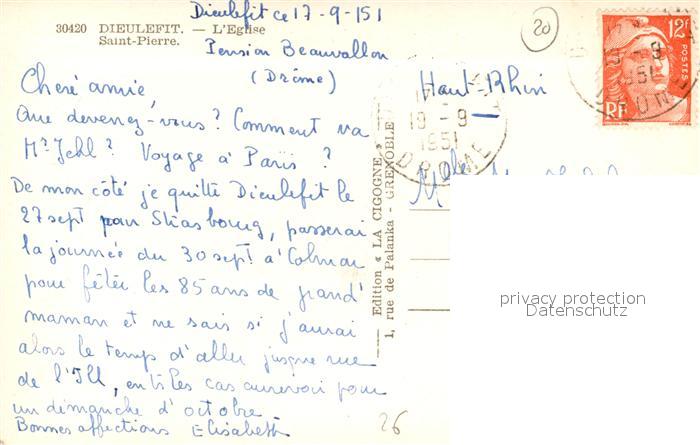 Dieulefit ce 17-9-151
30420 DIEULEFIT. — L'Eglise
Saint-Pierre.
Pension Beauvallon
(Drôme)
Chère amie,
Que devenez-vous? Comment va
Mr Jehl? Voyage à Paris ?
De mon côté je quitte Dieulefit le
27 sept pour Strasbourg, passerai
la journée du 30 sept à Colmar
pour fêter les 85 ans de grand'
maman et ne sais si j'aurai
alors le temps d'aller jusque rue
de l'Ill, en ts les cas aurevoir pour
un dimanche d'octobre
Bonnes affections Elisabeth
Haut-Rhin
20
12F
POSTES
RF
18-9
1951
DROME
Edition « LA CIGOGNE »
1, rue de Palanka - GRENOBLE
privacy protection
Datenschutz
26